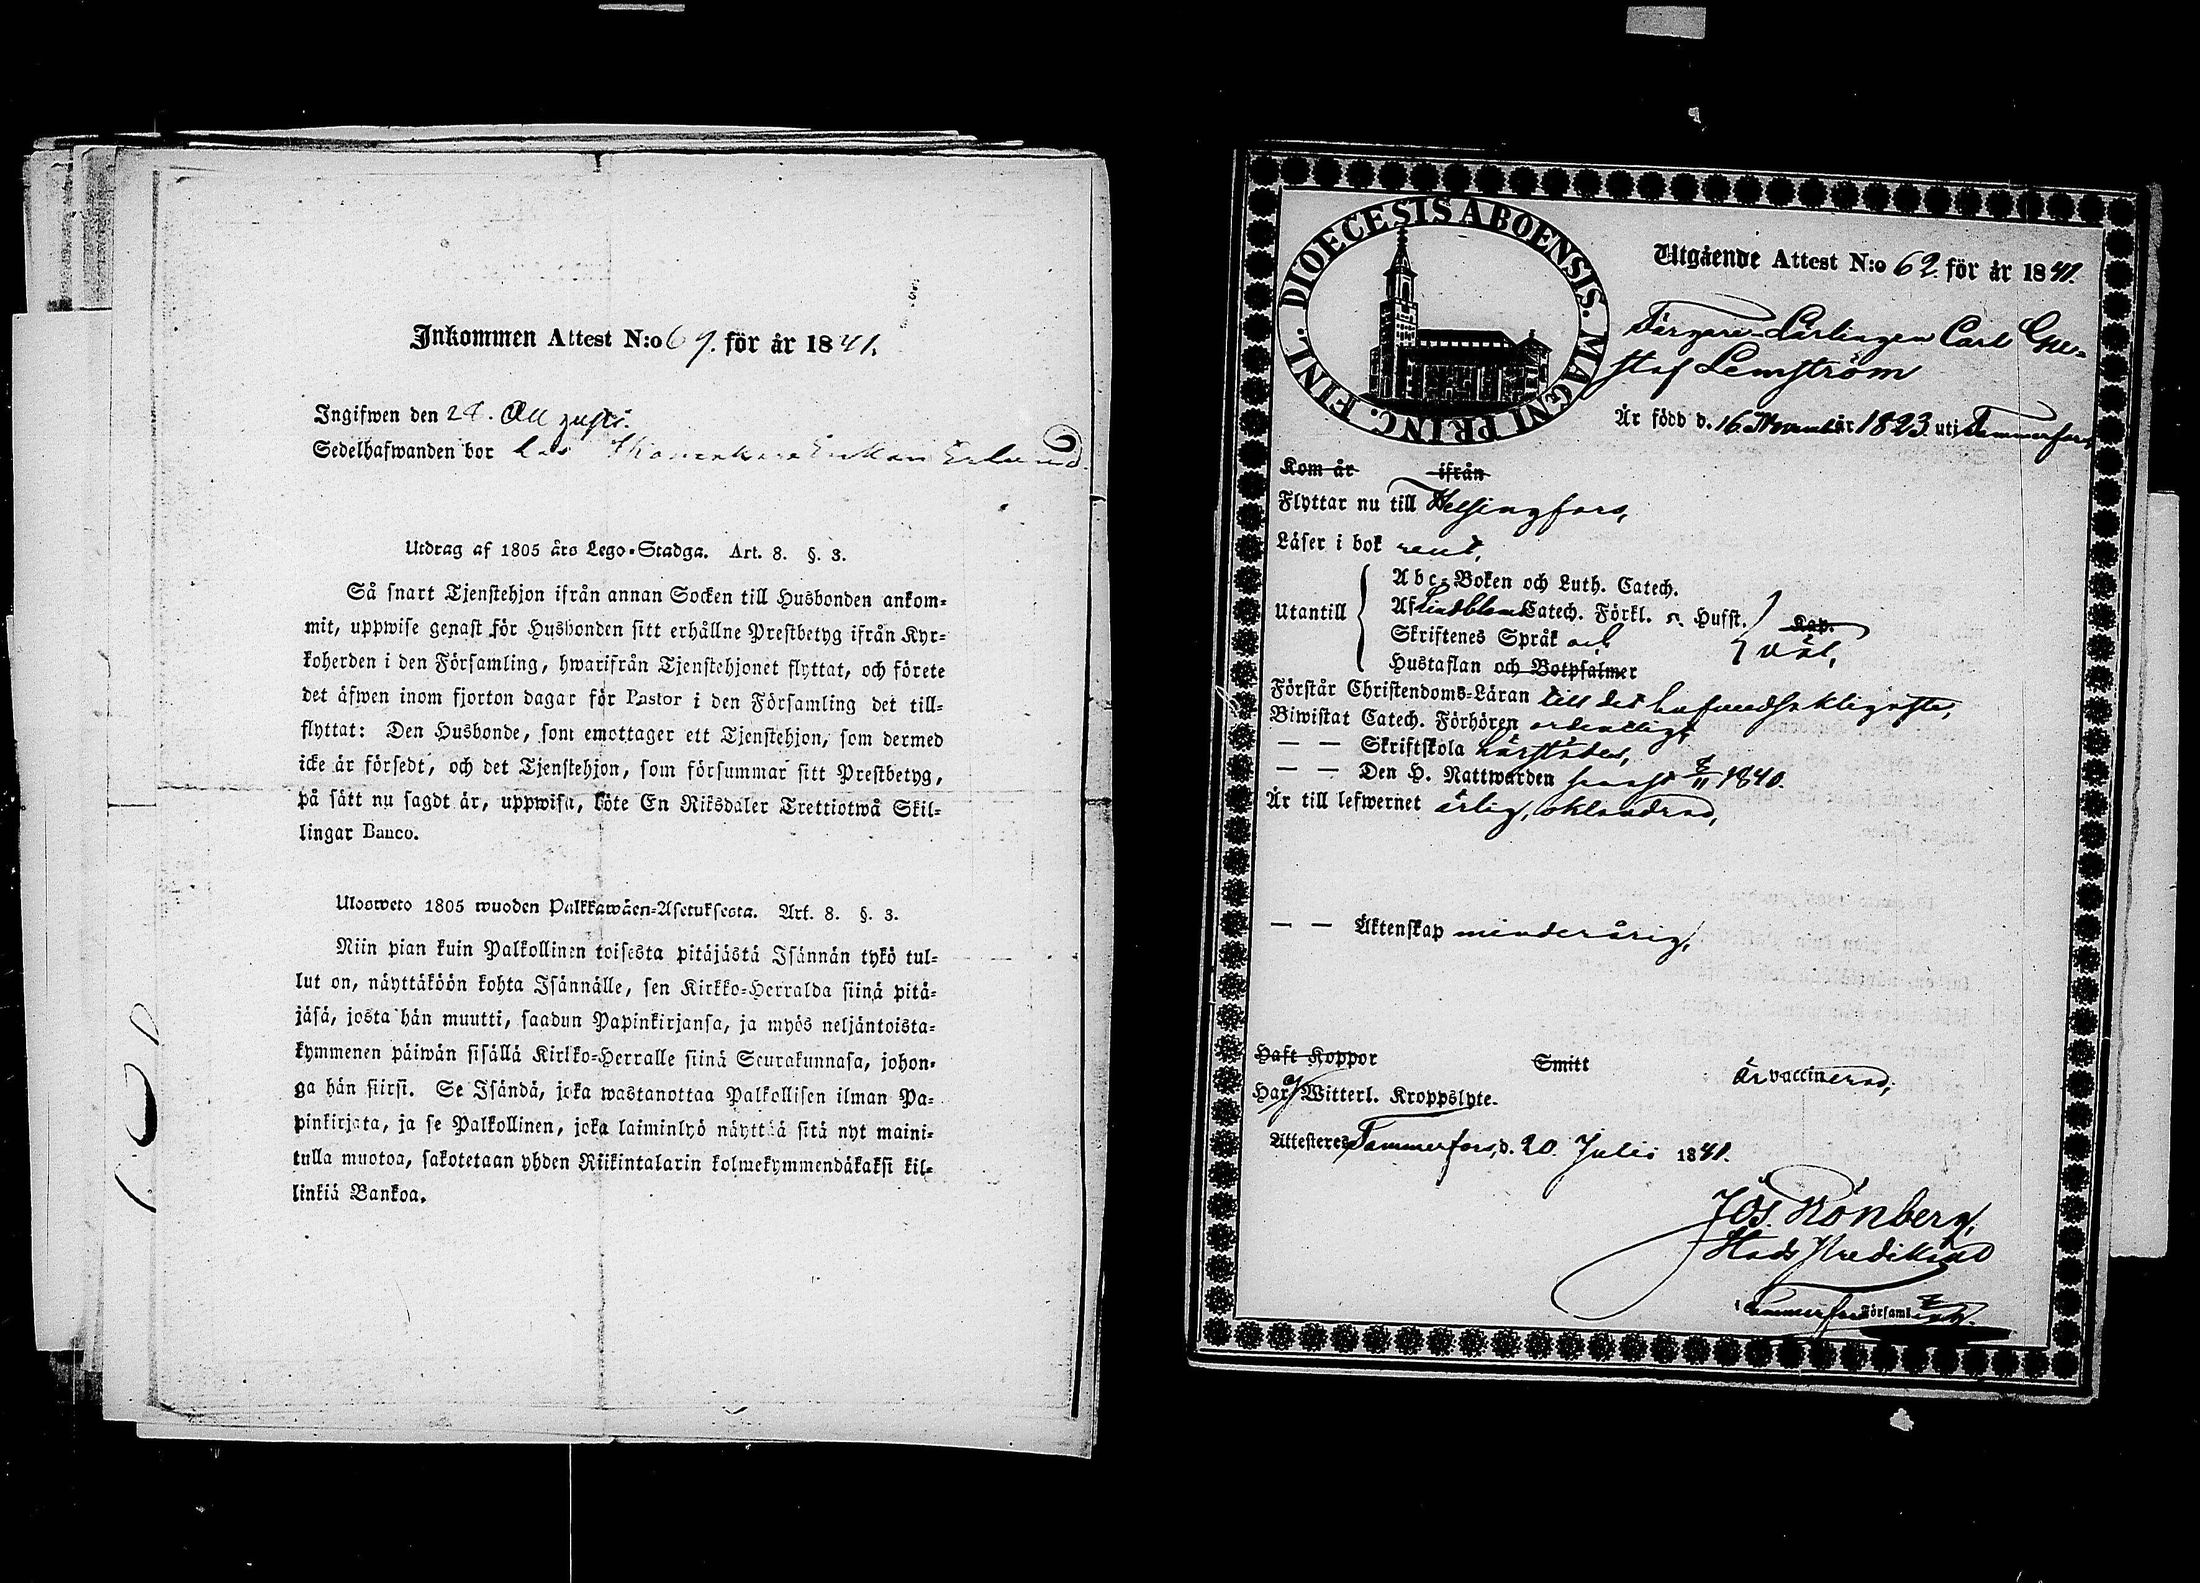 Inkommen Attest N:o 69. för år 1841.
Ingifwen den 28. Augusti.
Sedelhafwanden bor hos Enkan Erlund
Utdrag af 1805 års Lego-Stadga. Art. 8. §. 3.
Så snart Tjenstehjon ifrån annan Socken till Husbonden ankom-
mit, uppwise genast för Husbonden sitt erhållne Prestbetyg ifrån Kyr-
koherden i den Församling, hwarifrån Tjenstehjonet flyttat, och förete
det äfwen inom fjorton dagar för Pastor i den Församling det till-
flyttat: Den Husbonde, som emottager ett Tjenstehjon, som dermed
icke är försedt, och det Tjenstehjon, som försummar sitt Prestbetyg,
på sätt nu sagdt är, uppwisa, böte En Riksdaler Trettiotwå Skil-
lingar Banco.
Ulosweto 1805 wuoden Palkkawäen-Asetuksesta. Art. 8. §. 3.
Niin pian kuin Palkollinen toisesta pitäjästä Isännän tykö tul-
lut on, näyttäköön kohta Isännälle, sen Kirkko-Herralda siinä pitä-
jäsä, josta hän muutti, saadun Papinkirjansa, ja myös neljäntoista-
kymmenen päiwän sisällä Kirkko-Herralle siinä Seurakunnasa, johon-
ga hän siirsi. Se Isändä, joka wastanottaa Palkollisen ilman Pa-
pinkirjata, ja se Palkollinen, joka laiminlyö näyttää sitä nyt maini-
tulla muotoa, sakotetaan yhden Riikintalarin kolmekymmendäkaksi kil-
linkiä Bankoa.
DIOECESIS ABOENSIS. MAGNI PRINC. FINL.
Utgående Attest N:o 62. för år 1841.
Färgare Lärlingen Carl Gu-
staf Lemström
Är född d. 16 November 1823. uti Tammerfors,
Kom år ifrån
Flyttar nu till Helsingfors,
Läser i bok rent,
Utantill
Abc-Boken och Luth. Catech.
Af Lindbloms Catech. Förkl. o. Hufst. Kap.
Skriftenes Språk och
Hustaflan och Botpsalmer
väl,
Förstår Christendoms-Läran till det hufvudsakligaste,
Biwistat Catech. Förhören ordentligt,
— — Skriftskola härstädes,
— — Den H. Nattwarden senast 8/11 1840.
Är till lefwernet ärlig, oklandrad,
— — Äktenskap minderårig,
Haft Koppor Smitt är vaccinerad,
Har ej Witterl. Kroppslyte.
Attesteres Tammerfors, d. 20. Julii 1841.
Jos. Rönberg,
Stads Predikant
i Tammerfors Församl.